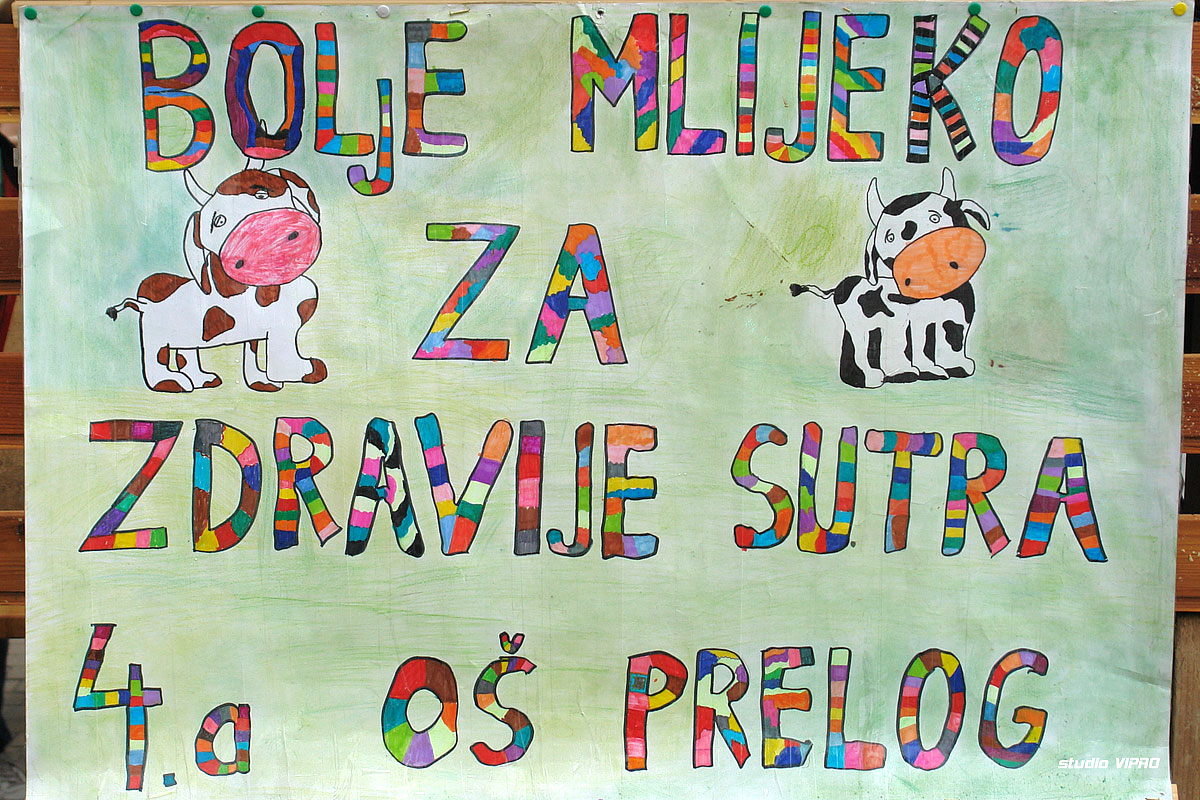 BOLjE MLIJEKO
ZA
ZDRAVIJE SUTRA
4.a OŠ PRELOG
studio VIPRO